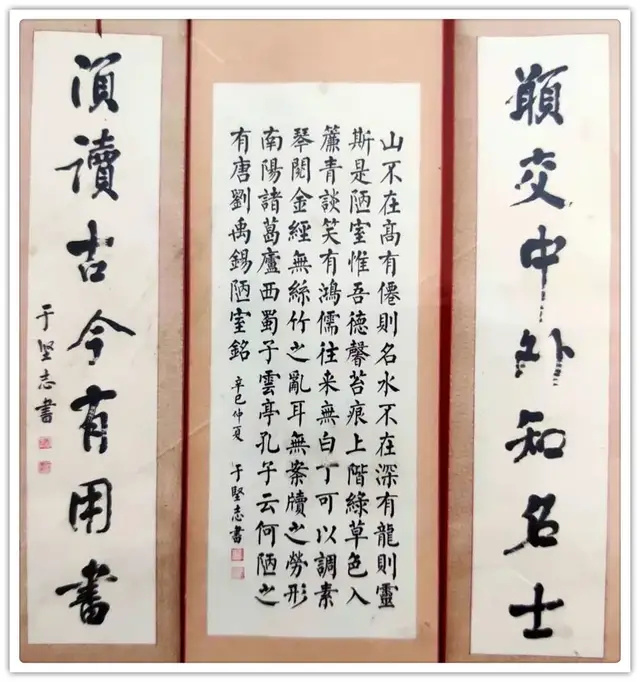 願交中外知名士
山不在高有僊則名水不在深有龍則靈
斯是陋室惟吾德馨苔痕上階綠草色入
簾青談笑有鴻儒往来無白丁可以調素
琴閱金經無絲竹之亂耳無案牘之勞形
南陽諸葛廬西蜀子雲亭孔子云何陋之
有唐劉禹錫陋室銘 辛巳仲夏 于堅志書
湏讀古今有用書
于堅志書